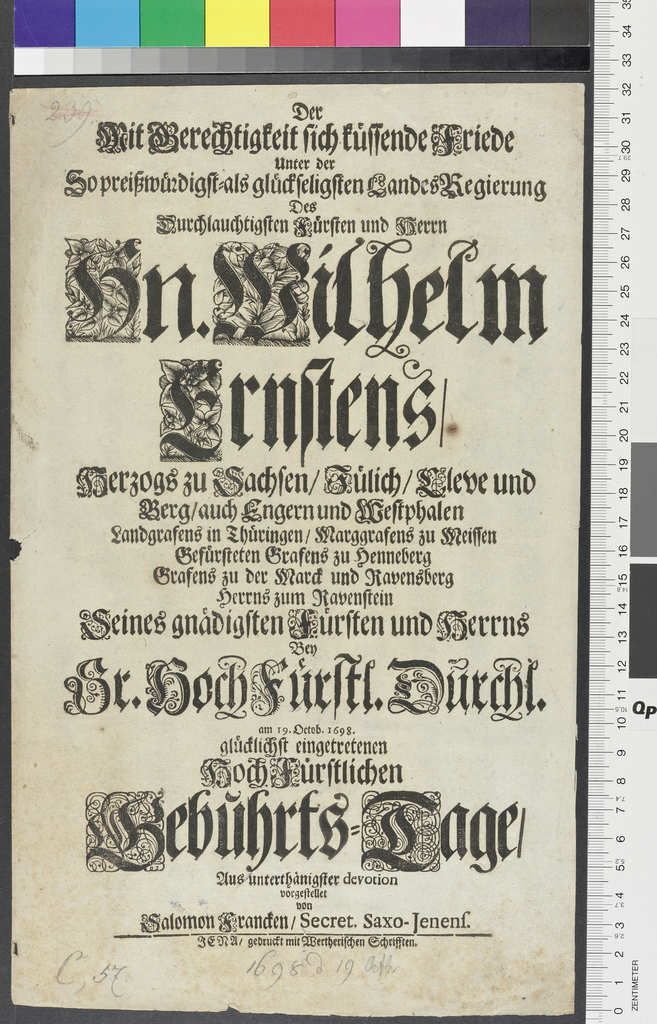 239.
Der
Mit Gerechtigkeit sich küssende Friede
Unter der
So preißwürdigst-als glückseligsten Landes Regierung
Des
Durchlauchtigsten Fürsten und Herrn
Hn. Wilhelm
Ernstens/
Herzogs zu Sachsen/ Jülich/ Cleve und
Berg/ auch Engern und Westphalen
Landgrafens in Thüringen/ Marggrafens zu Meissen
Gefürsteten Grafens zu Henneberg
Grafens zu der Marck und Ravensberg
Herrns zum Ravenstein
Seines gnädigsten Fürsten und Herrns
Bey
Sr. Hoch Fürstl. Durchl.
am 19. Octob. 1698.
glücklichst eingetretenen
Hoch Fürstlichen
Gebuhrts-Tage/
Aus unterthänigster devotion
vorgestellet
von
Salomon Francken/ Secret. Saxo-Jenens.
JENA/ gedruckt mit Wertherischen Schrifften.
C, 57.
1698 d 19
35
34
33
32
31
30
29.7
29
28
27
26
25
24
23
22
21
20
19
18
17
16
15
14.8
14
13
12
11
10.5
10
9
8
7.4
7
6
5.2
5
4
3.7
3
2.6
2
1
0
ZENTIMETER
Qp